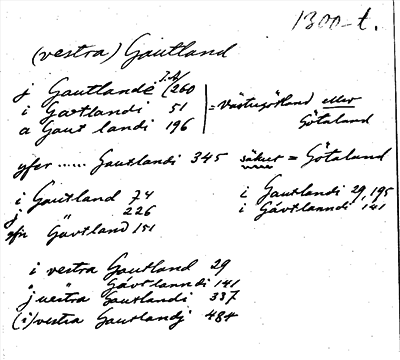 1300-t.
(vestra) Gautland
j Gautlande (260
i Gautlandi 51 = Västergötland eller
a Gaut landi 196 Götaland
yfer ...... Gautlandi 345 säker = Götaland
i Gautland 74 i Gautlandi 29, 195
j " 226 i Gávtlanndi 141
yfir Gavtland 151
i vestra Gautland 29
i " Gávtlanndi 141
j uestra Gautlandi 337
(i) vestra Gautlandj 484